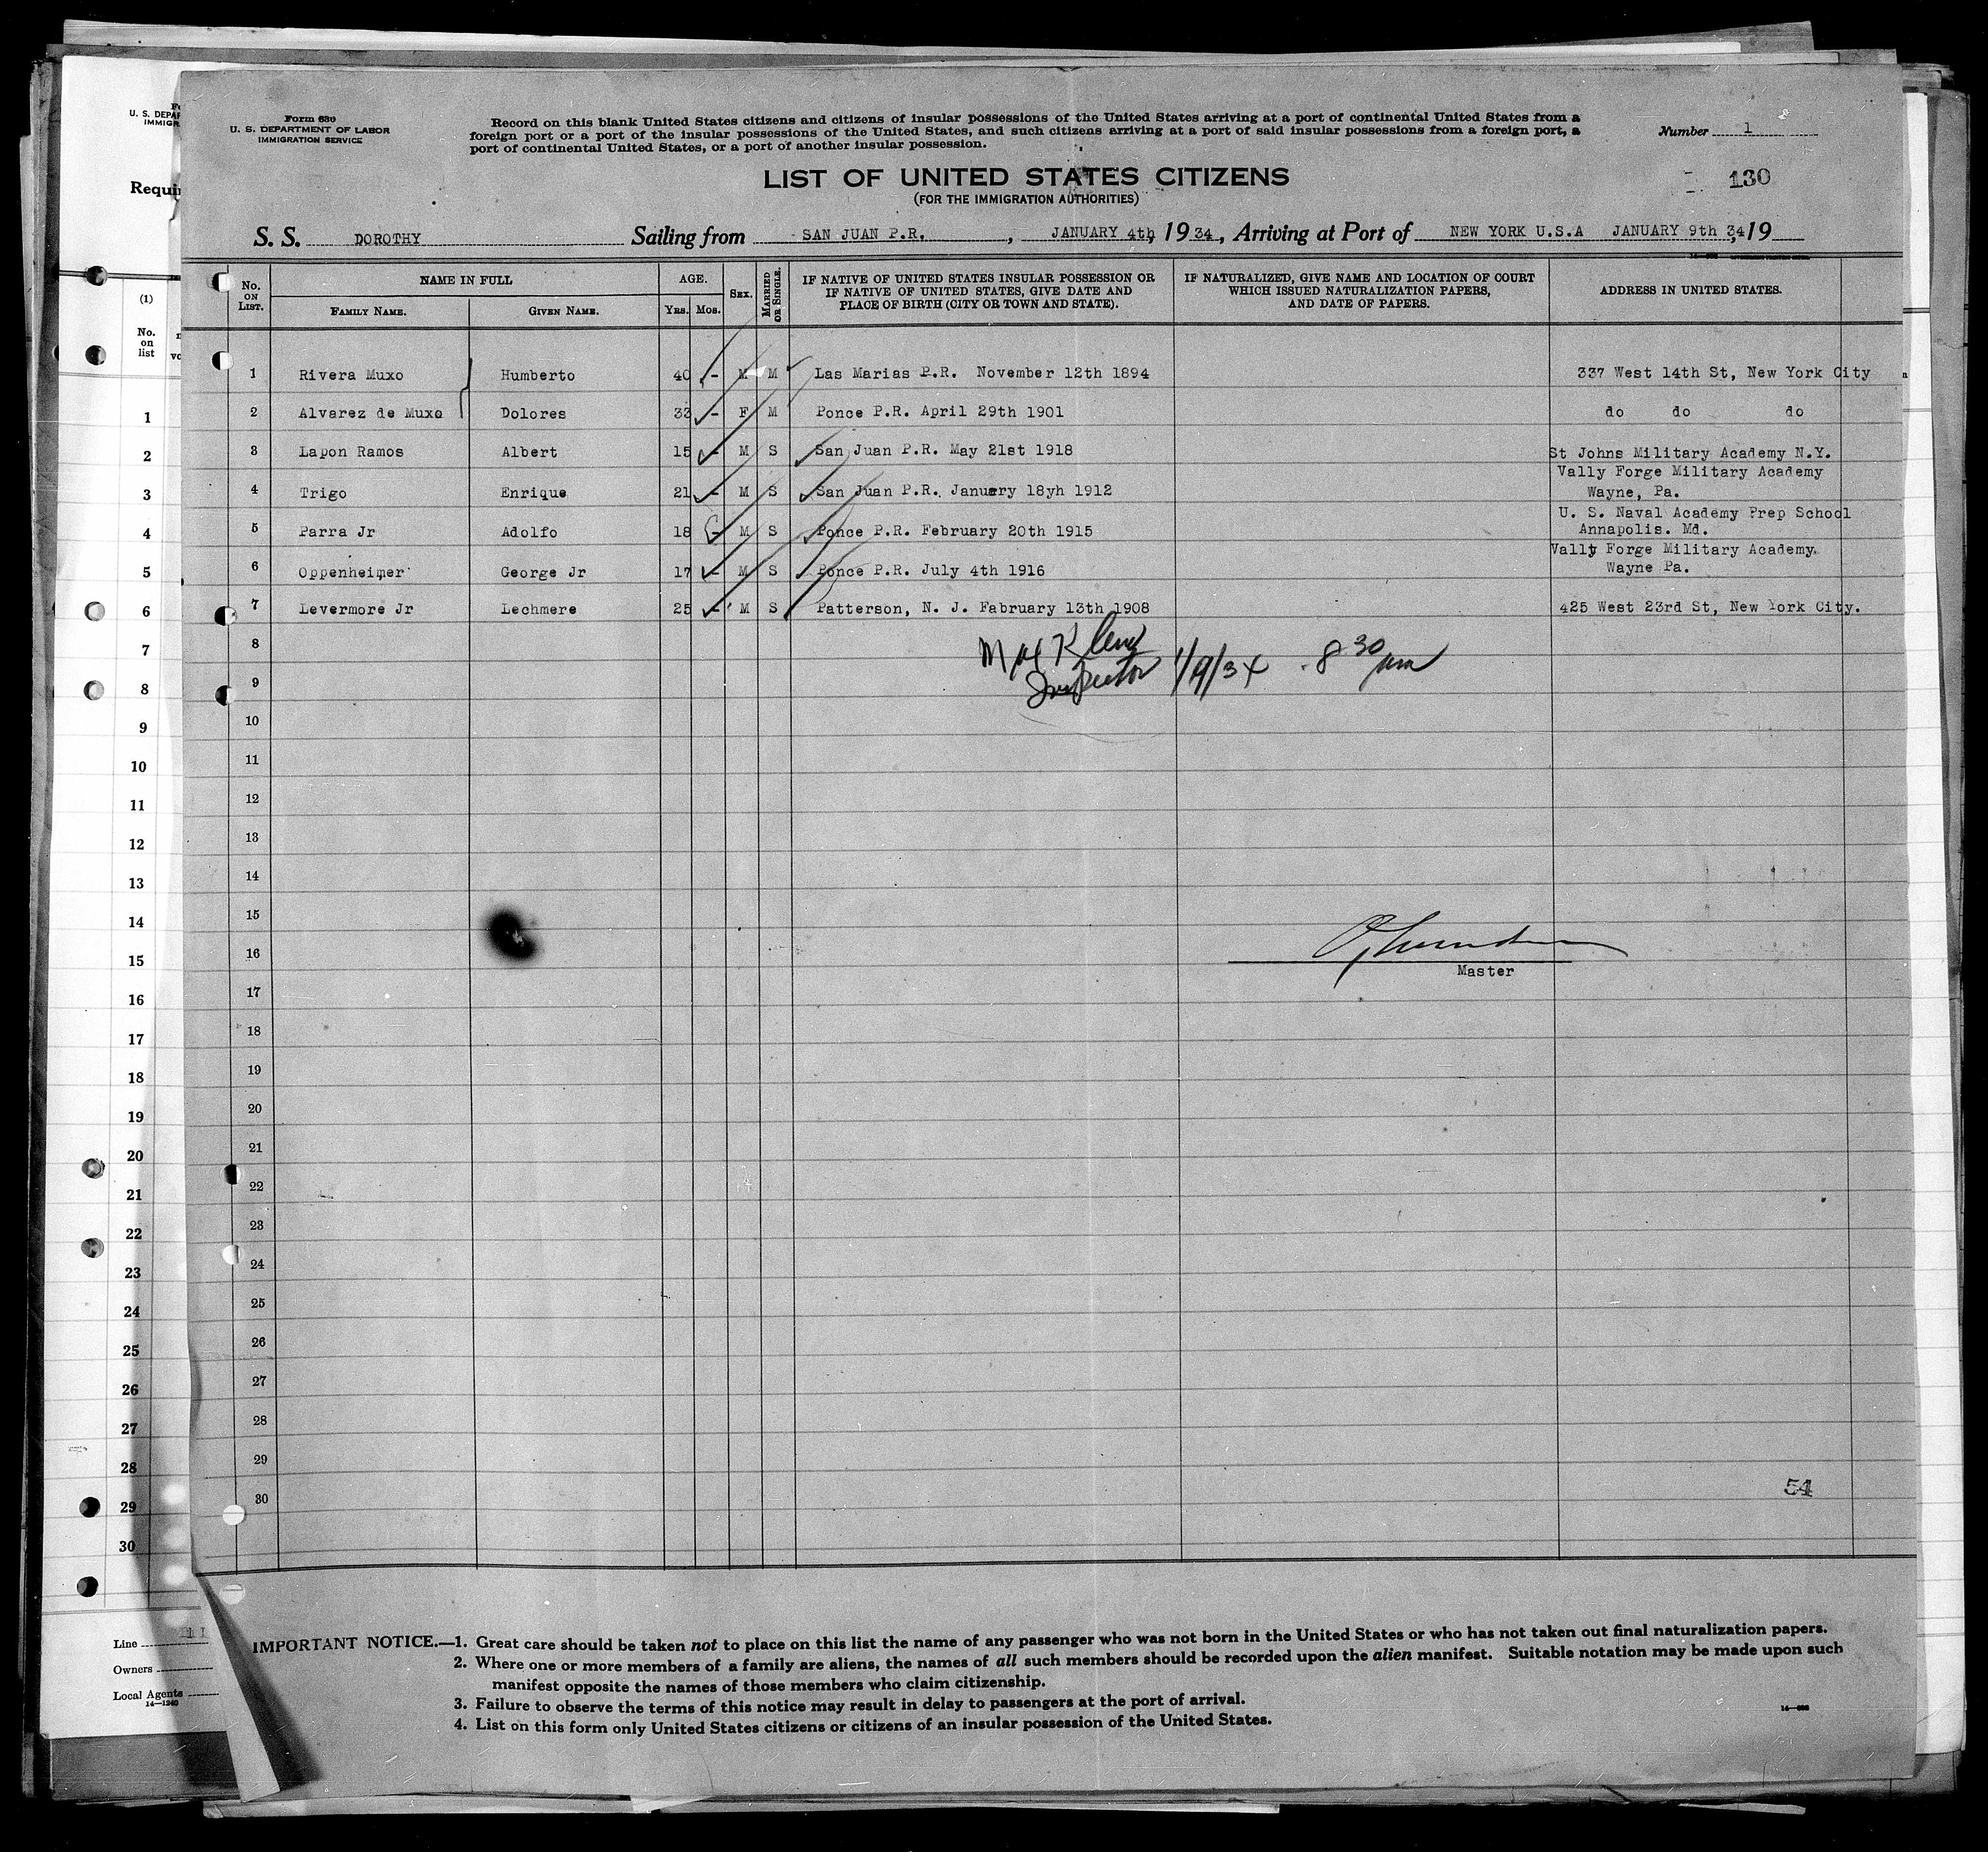 Form 630
U. S. DEPARTMENT OF LABOR
IMMIGRATION SERVICE
Record on this blank United States citizens and citizens of insular possessions of the United States arriving at a port of continental United States from a
foreign port or a port of the insular possessions of the United States, and such citizens arriving at a port of said insular possessions from a foreign port, a
port of continental United States, or a port of another insular possession.
Number 1
130
LIST OF UNITED STATES CITIZENS
(FOR THE IMMIGRATION AUTHORITIES)
S. S. DOROTHY Sailing from SAN JUAN P.R. , JANUARY 4th, 19 34, Arriving at Port of NEW YORK U.S.A JANUARY 9th 34, 19
No. ON LIST. NAME IN FULL AGE. SEX. MARRIED OR SINGLE. IF NATIVE OF UNITED STATES INSULAR POSSESSION OR IF NATIVE OF UNITED STATES, GIVE DATE AND PLACE OF BIRTH (CITY OR TOWN AND STATE). IF NATURALIZED, GIVE NAME AND LOCATION OF COURT WHICH ISSUED NATURALIZATION PAPERS, AND DATE OF PAPERS. ADDRESS IN UNITED STATES.
FAMILY NAME. GIVEN NAME. YRS. MOS.
1 Rivera Muxo Humberto 40 - M M Las Marias P.R. November 12th 1894 337 West 14th St, New York City
2 Alvarez de Muxo Dolores 33 - F M Ponce P.R. April 29th 1901 do do do
3 Lapon Ramos Albert 15 - M S San Juan P.R. May 21st 1918 St Johns Military Academy N.Y.
4 Trigo Enrique 21 - M S San Juan P.R. January 18yh 1912 Vally Forge Military Academy
Wayne, Pa.
5 Parra Jr Adolfo 18 - M S Ponce P.R. February 20th 1915 U. S. Naval Academy Prep School
Annapolis. Md.
6 Oppenheimer George Jr 17 - M S Ponce P.R. July 4th 1916 Vally Forge Military Academy.
Wayne Pa.
7 Levermore Jr Lechmere 25 - M S Patterson, N. J. Fabruary 13th 1908 425 West 23rd St, New York City.
8
Max Klein
Inspector 1/9/34 8 30 am
9
10
11
12
13
14
15
16
Master
17
18
19
20
21
22
23
24
25
26
27
28
29
30
54
IMPORTANT NOTICE.—1. Great care should be taken not to place on this list the name of any passenger who was not born in the United States or who has not taken out final naturalization papers.
2. Where one or more members of a family are aliens, the names of all such members should be recorded upon the alien manifest. Suitable notation may be made upon such
manifest opposite the names of those members who claim citizenship.
3. Failure to observe the terms of this notice may result in delay to passengers at the port of arrival.
4. List on this form only United States citizens or citizens of an insular possession of the United States.
U. S. DEPA
IMMIGR
Requi
(1)
No.
on
list
1
2
3
4
5
6
7
8
9
10
11
12
13
14
15
16
17
18
19
20
21
22
23
24
25
26
27
28
29
30
Line
Owners
Local Agents
14—1240